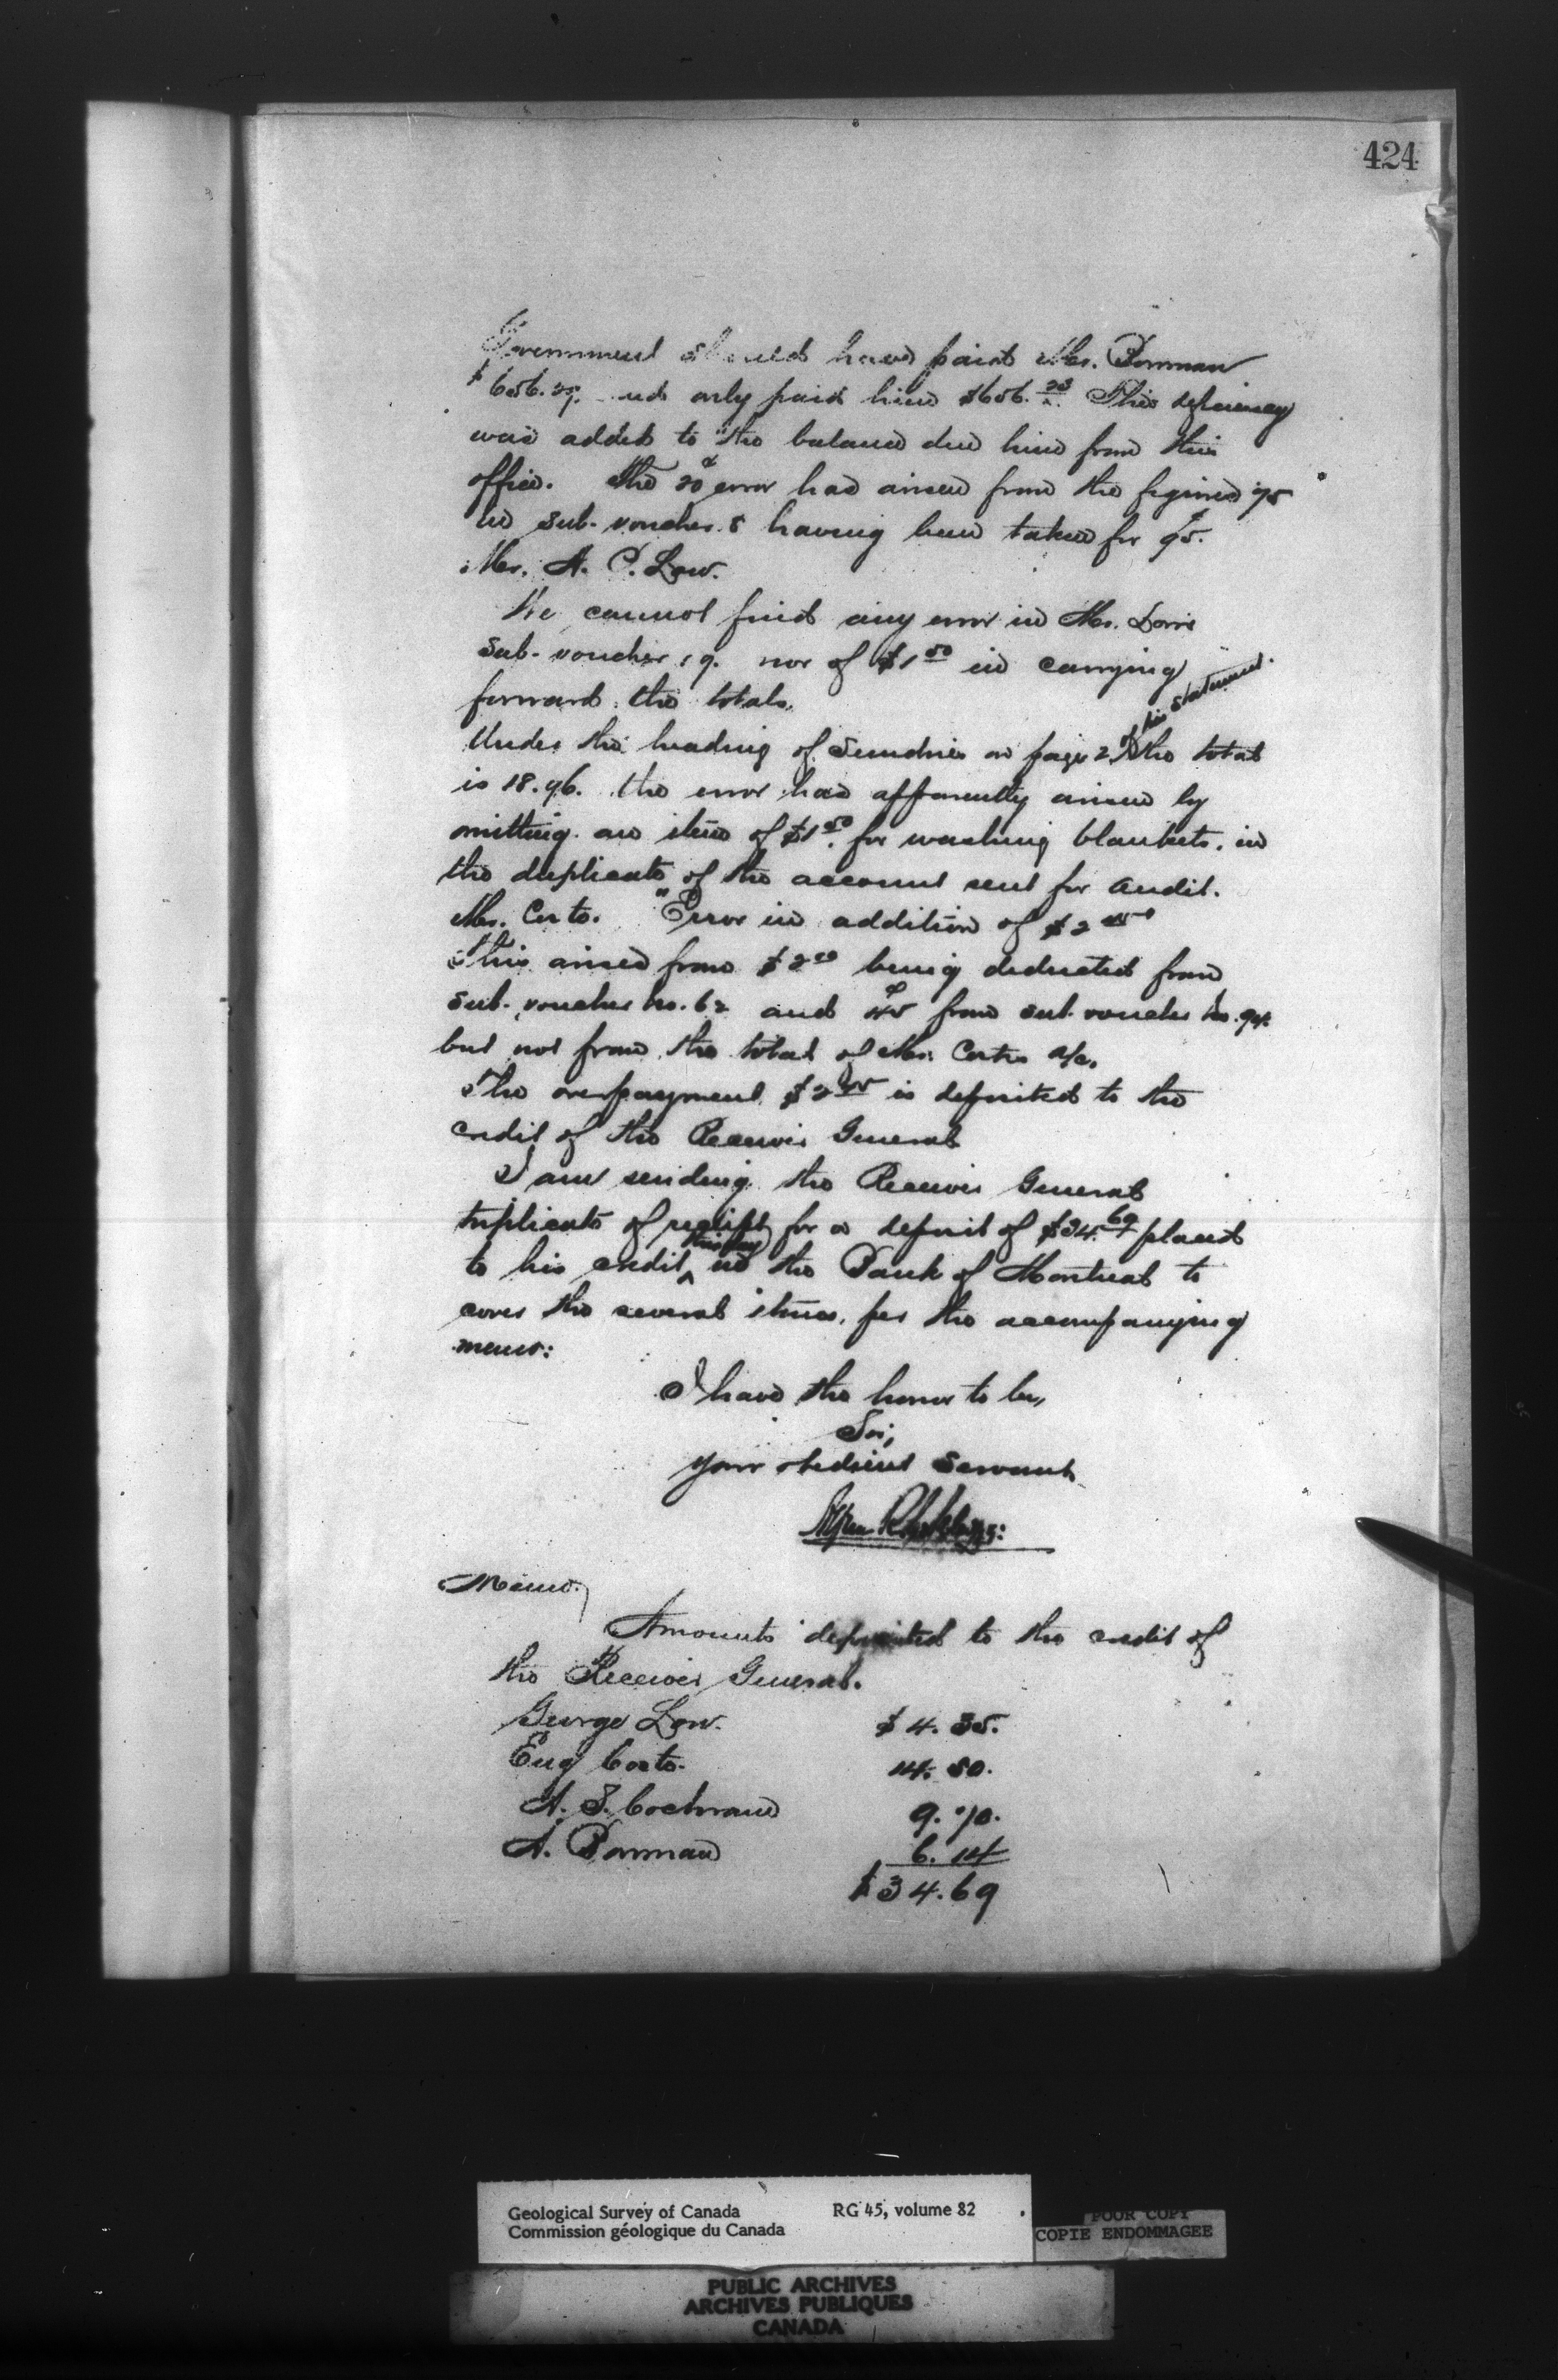 424
Government should have paid Mr. Bowman
$656.29. and only paid him $656.23 This deficiency
was added to the balance due him from this
office. The 20¢ error had arisen from the figures 75
in Sub-voucher 8 having been taken for 95¢.
Mr. A. P. Low.
We cannot find any error in Mr. Lows
Sub-voucher 19. nor of $1.50 in carrying
forward the totals.
Under the heading of Sundries on page 2 of his statement. the total
is 18.96. the error has apparently arisen by
omitting an item of $1.50 for washing blankets. in
the duplicate of the account sent for audit.
Mr. Coste. "Error in addition of $2.45"
This arises from $2.00 being deducted from
Sub-voucher No. 62 and 45¢ from sub voucher No. 94.
but not from the total of Mr. Costes a/c.
The overpayment $2.45 is deposited to the
credit of the Receiver General
I am sending the Receiver General
triplicate of receipt for a deposit of $34.69 placed
to his credit this day in the Bank of Montreal to
cover the several items, per the accompanying
memo:
I have the honor to be,
Sir,
Your obedient Servant
Memo.
Amounts deposited to the credit of
the Receiver General.
George Low. $4.35.
Eug Coste. 14.50.
A. S. Cochrane 9.70.
A. Bowman 6.14
$34.69
Geological Survey of Canada RG 45, volume 82
Commission géologique du Canada
POOR COPY
COPIE ENDOMMAGEE
PUBLIC ARCHIVES
ARCHIVES PUBLIQUES
CANADA